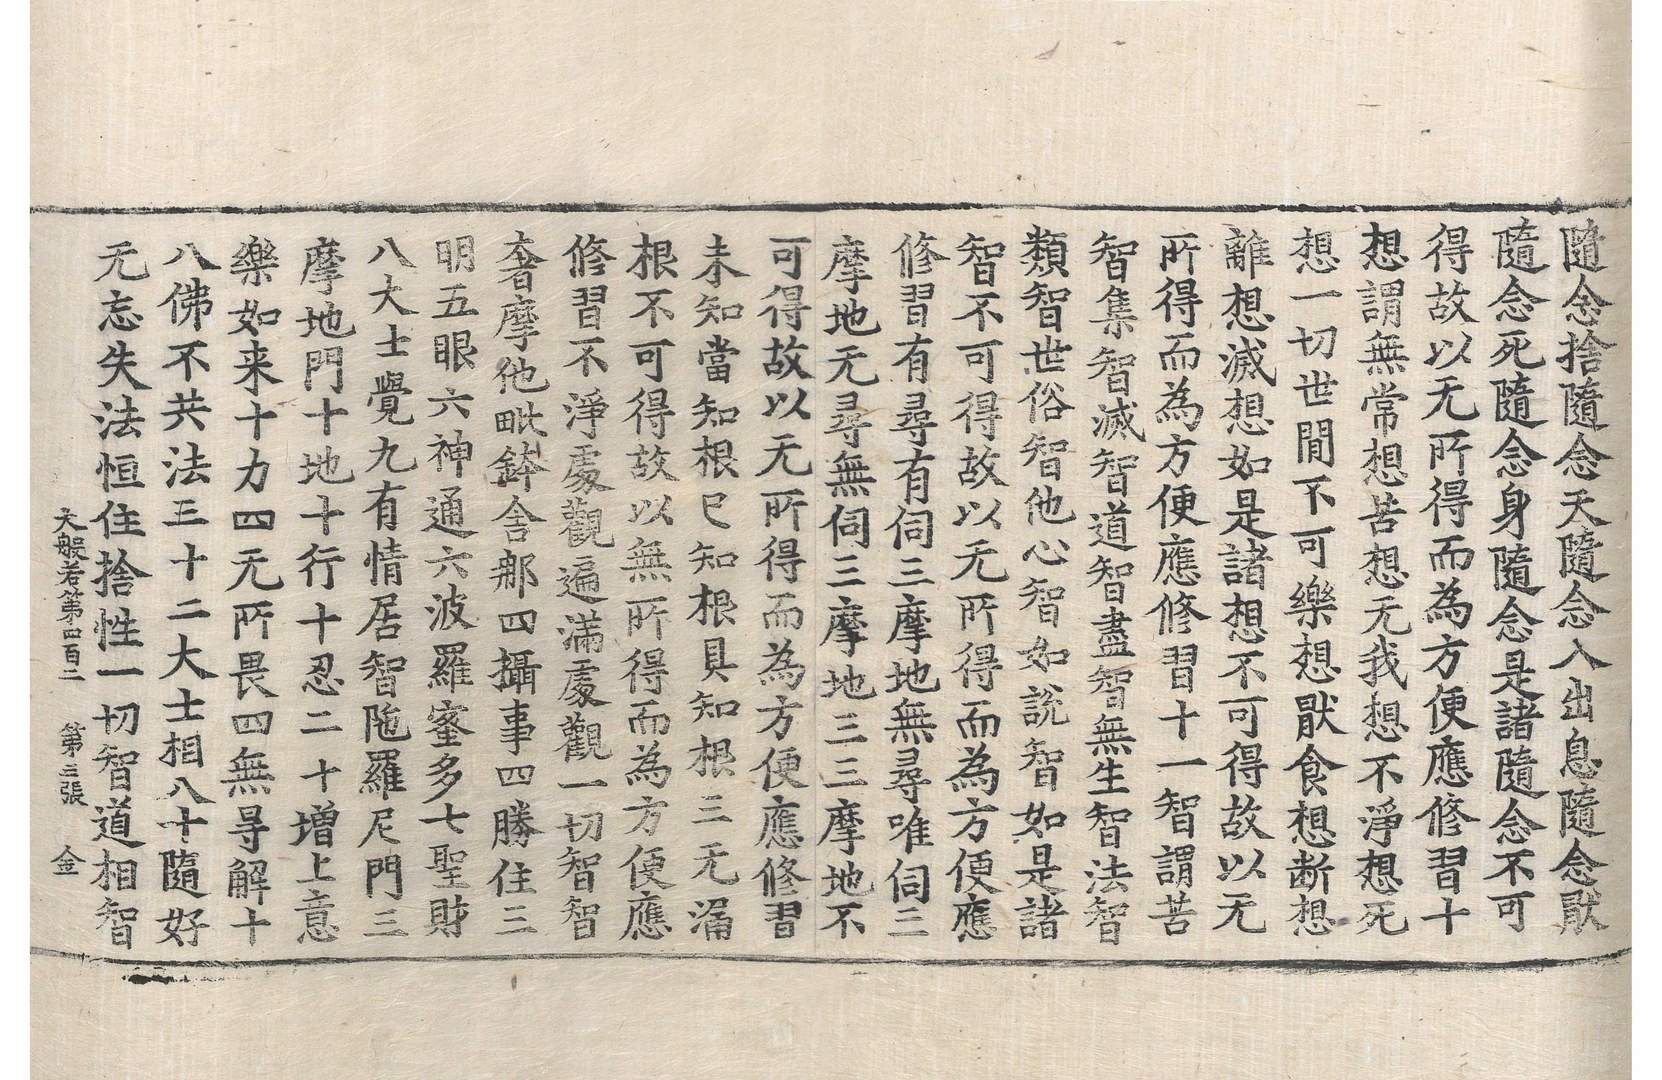 隨念捨隨念天隨念入出息隨念猒
隨念死隨念身隨念是諸隨念不可
得故以无所得而為方便應修習十
想謂無常想苦想无我想不淨想死
想一切世閒不可樂想猒食想断想
離想滅想如是諸想不可得故以无
所得而為方便應修習十一智謂苦
智集智滅智道智盡智無生智法智
類智世俗智他心智如說智如是諸
智不可得故以无所得而為方便應
修習有尋有伺三摩地無尋唯伺三
摩地无尋無伺三摩地三三摩地不
可得故以无所得而為方便應修習
未知當知根已知根具知根三无漏
根不可得故以無所得而為方便應
修習不淨處觀遍滿處觀一切智智
奢摩他毗鉢舍那四攝事四勝住三
明五眼六神通六波羅蜜多七聖財
八大士覺九有情居智陁羅尼門三
摩地門十地十行十忍二十增上意
樂如来十力四无所畏四無㝵解十
八佛不共法三十二大士相八十隨好
无忘失法恒住捨性一切智道相智
大般若第四百二 第三張 金